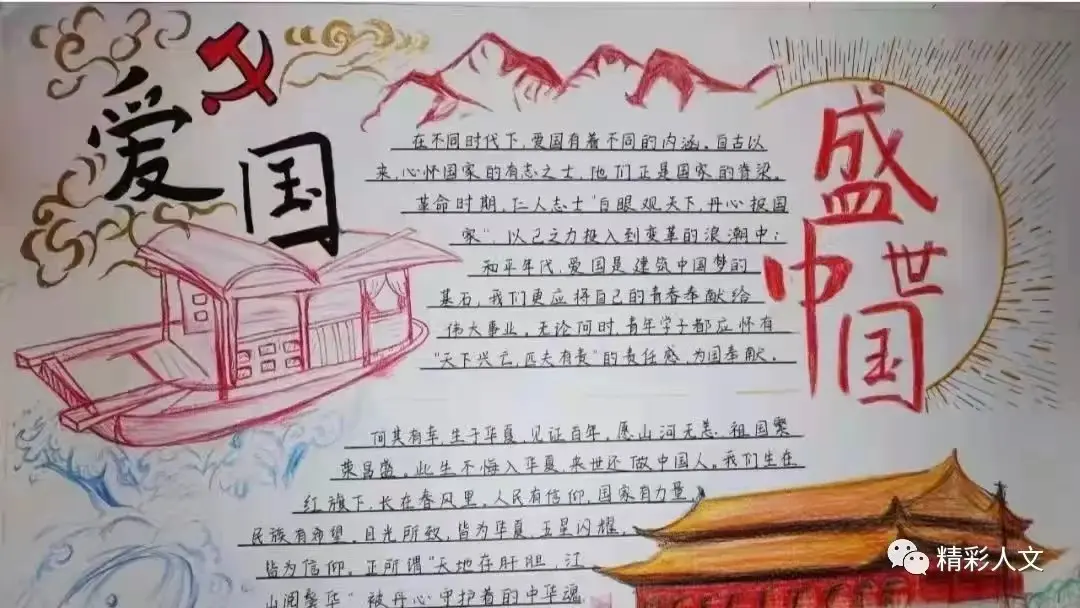 爱国
在不同时代下,爱国有着不同的内涵。自古以
来,心怀国家的有志之士,他们正是国家的脊梁。
革命时期,仁人志士"白眼观天下,丹心报国
家",以己之力投入到变革的浪潮中;
和平年代,爱国是建筑中国梦的
基石,我们更应将自己的青春奉献给
伟大事业,无论何时,青年学子都应怀有
"天下兴亡,匹夫有责"的责任感,为国奉献。
盛世
中国
何其有幸,生于华夏,见证百年,愿山河无恙,祖国繁
荣昌盛。此生不悔入华夏,来世还做中国人。我们生在
红旗下,长在春风里,人民有信仰,国家有力量,
民族有希望。目光所致,皆为华夏,五星闪耀,
皆为信仰。正所谓"天地存肝胆,江
山阅鬓华"被丹心守护着的中华魂
精彩人文